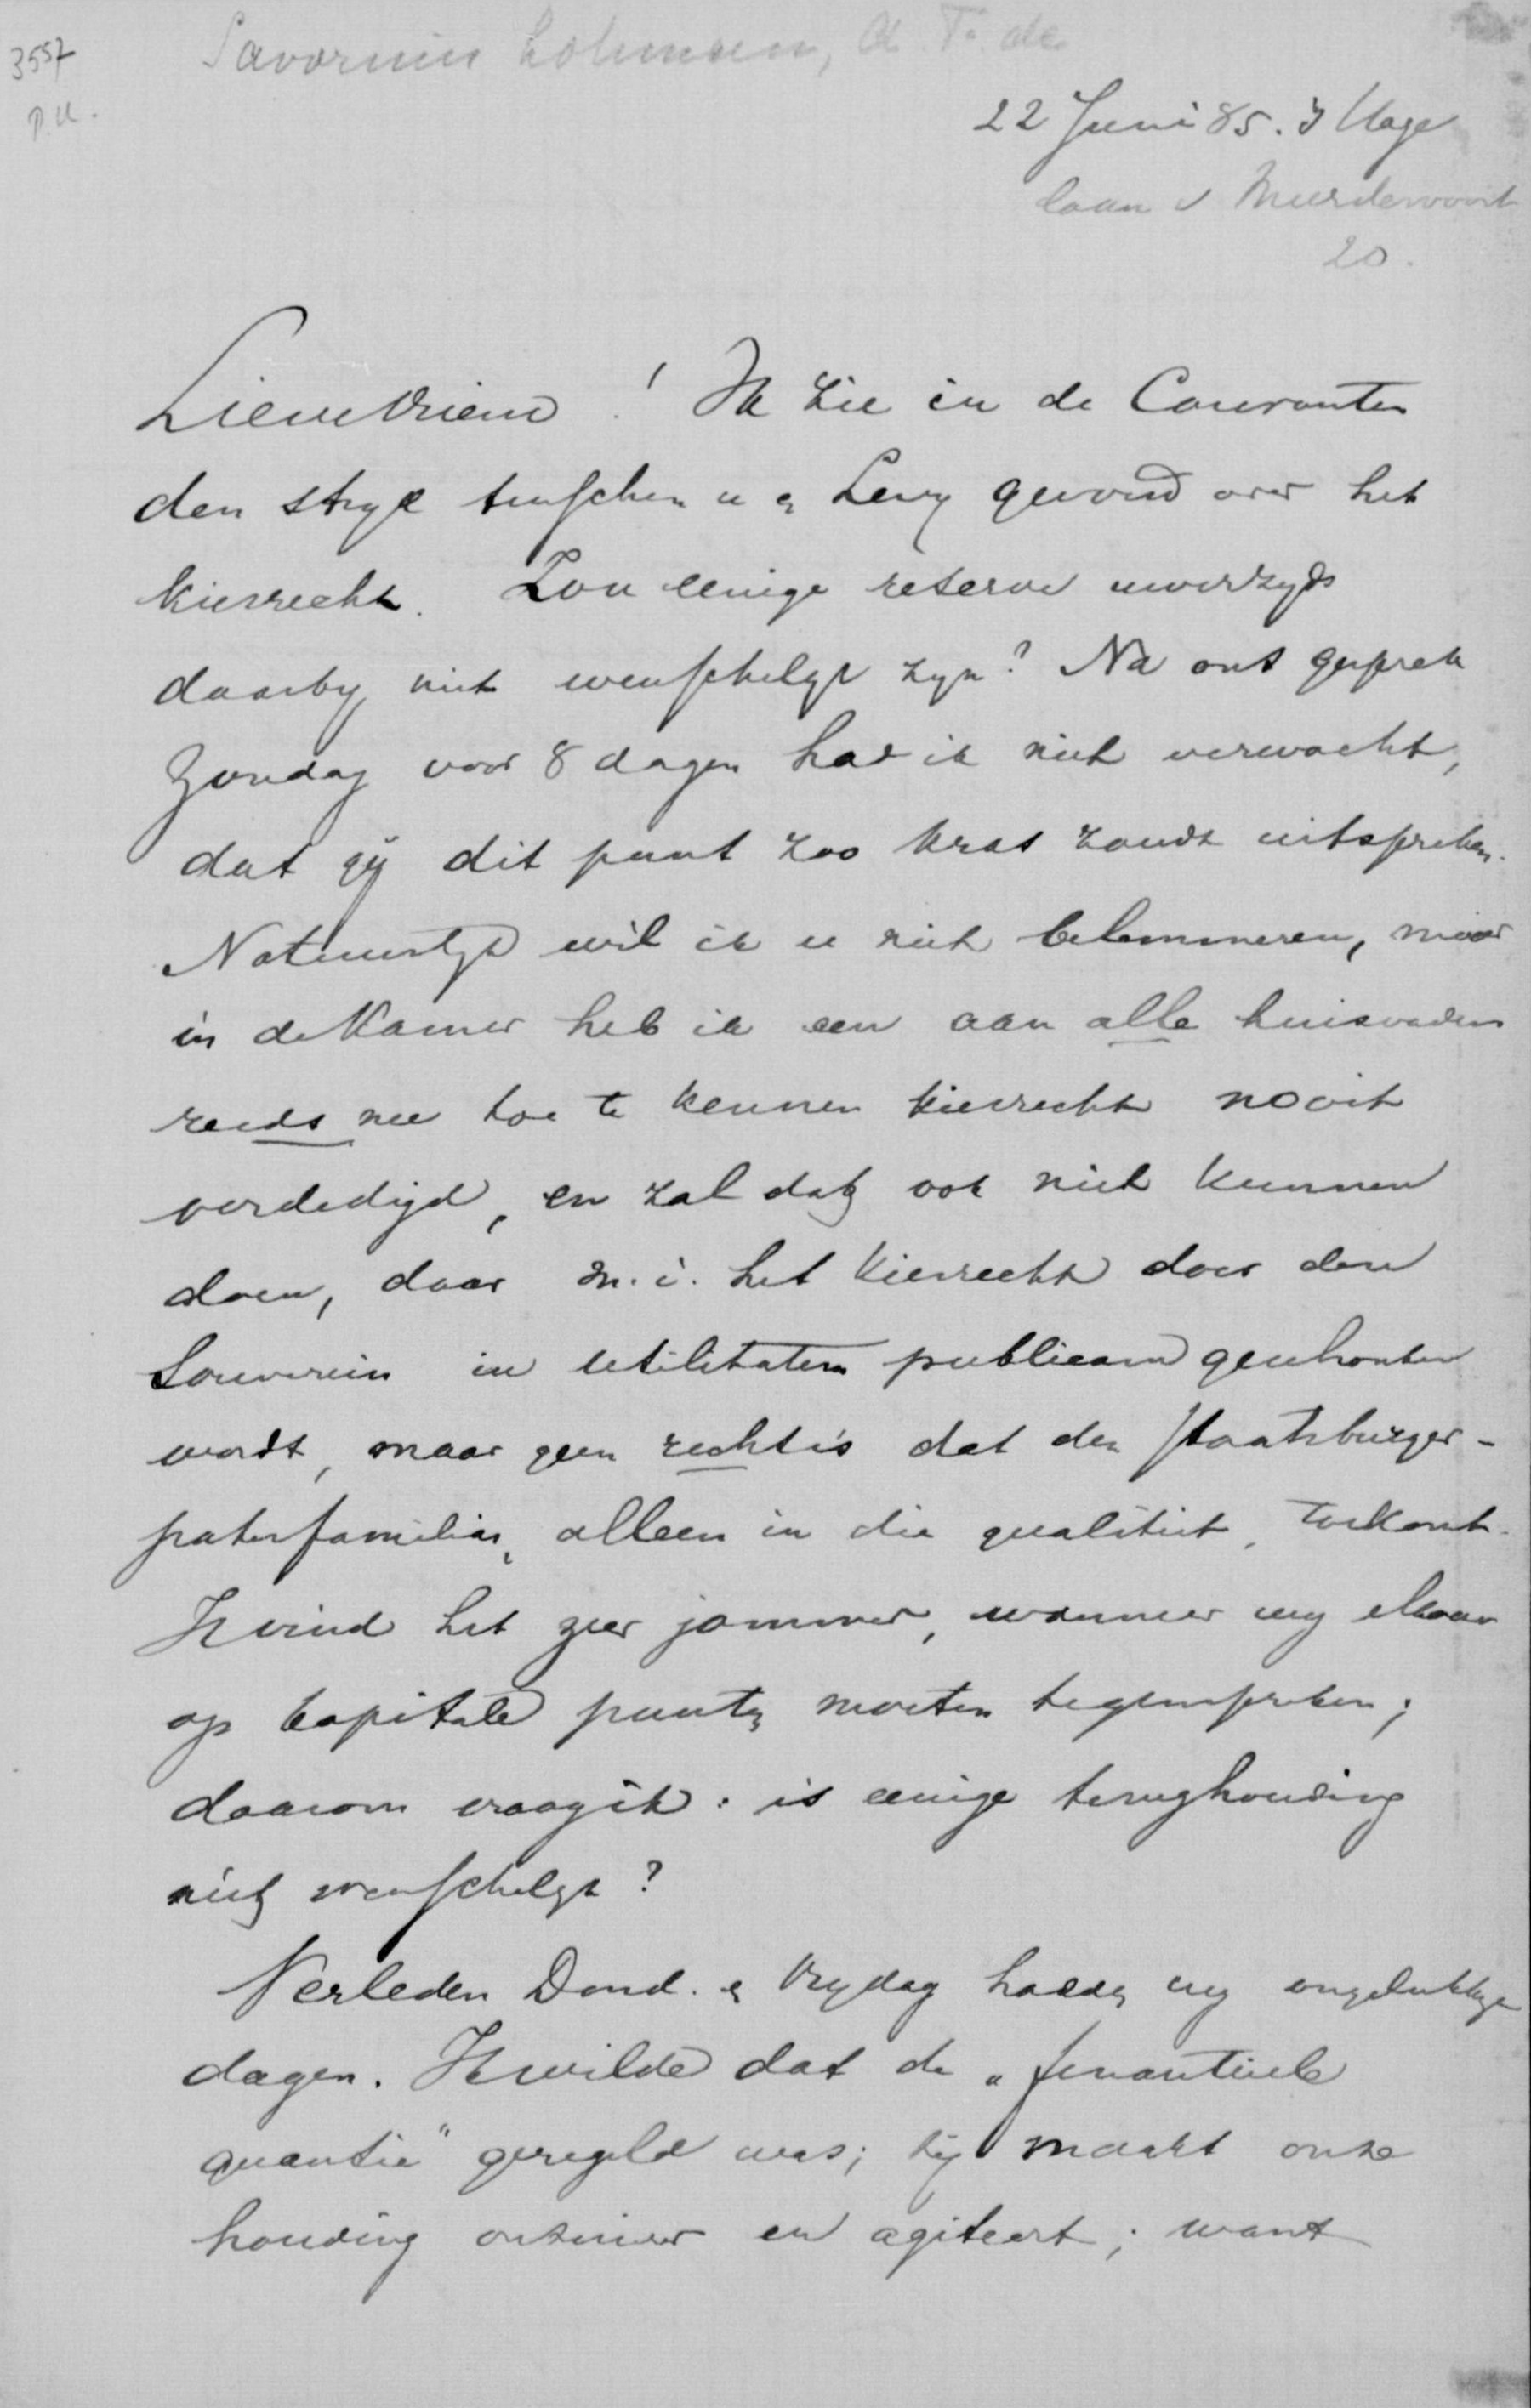 3557
P.K.
Savornin Lohman, A. F. de
22 Juni 85. 's Hage
laan v Meerdervoort
20.
Lieve Vriend! Ik zie in de Couranten
den stryd tusschen u en Levy gevoerd over het
kiesrecht. Zou eenige reserve uwerzyds
daarby niet wenschelyk zyn? Na ons gesprek
Zondag voor 8 dagen had ik niet verwacht,
dat gÿ dit punt zoo kras zoudt uitspreken.
Natuurlyk wil ik u niet belemmeren, maar
in de Kamer heb ik een aan alle huisvaders
reeds nu toe te kennen kiesrecht nooit
verdedigd, en zal dat ook niet kunnen
doen, daar m.i. het kiesrecht door den
Souverein in utilitatem publicam geschonken
wordt, maar geen recht is dat den staatsburger-
paterfamilias, alleen in die qualiteit, toekomt.
Ik vind het zeer jammer, wanneer wy elkaar
op kapitale punten moeten tegenspreken;
daarom vraag ik: is eenige terughouding
niet wenschelyk?
Verleden Dond. en Vrydag hadden wy ongelukkige
dagen. Ik wilde dat de "finantieele
quaestie" geregeld was; zij maakt onze
houding onzeker en agiteert; want